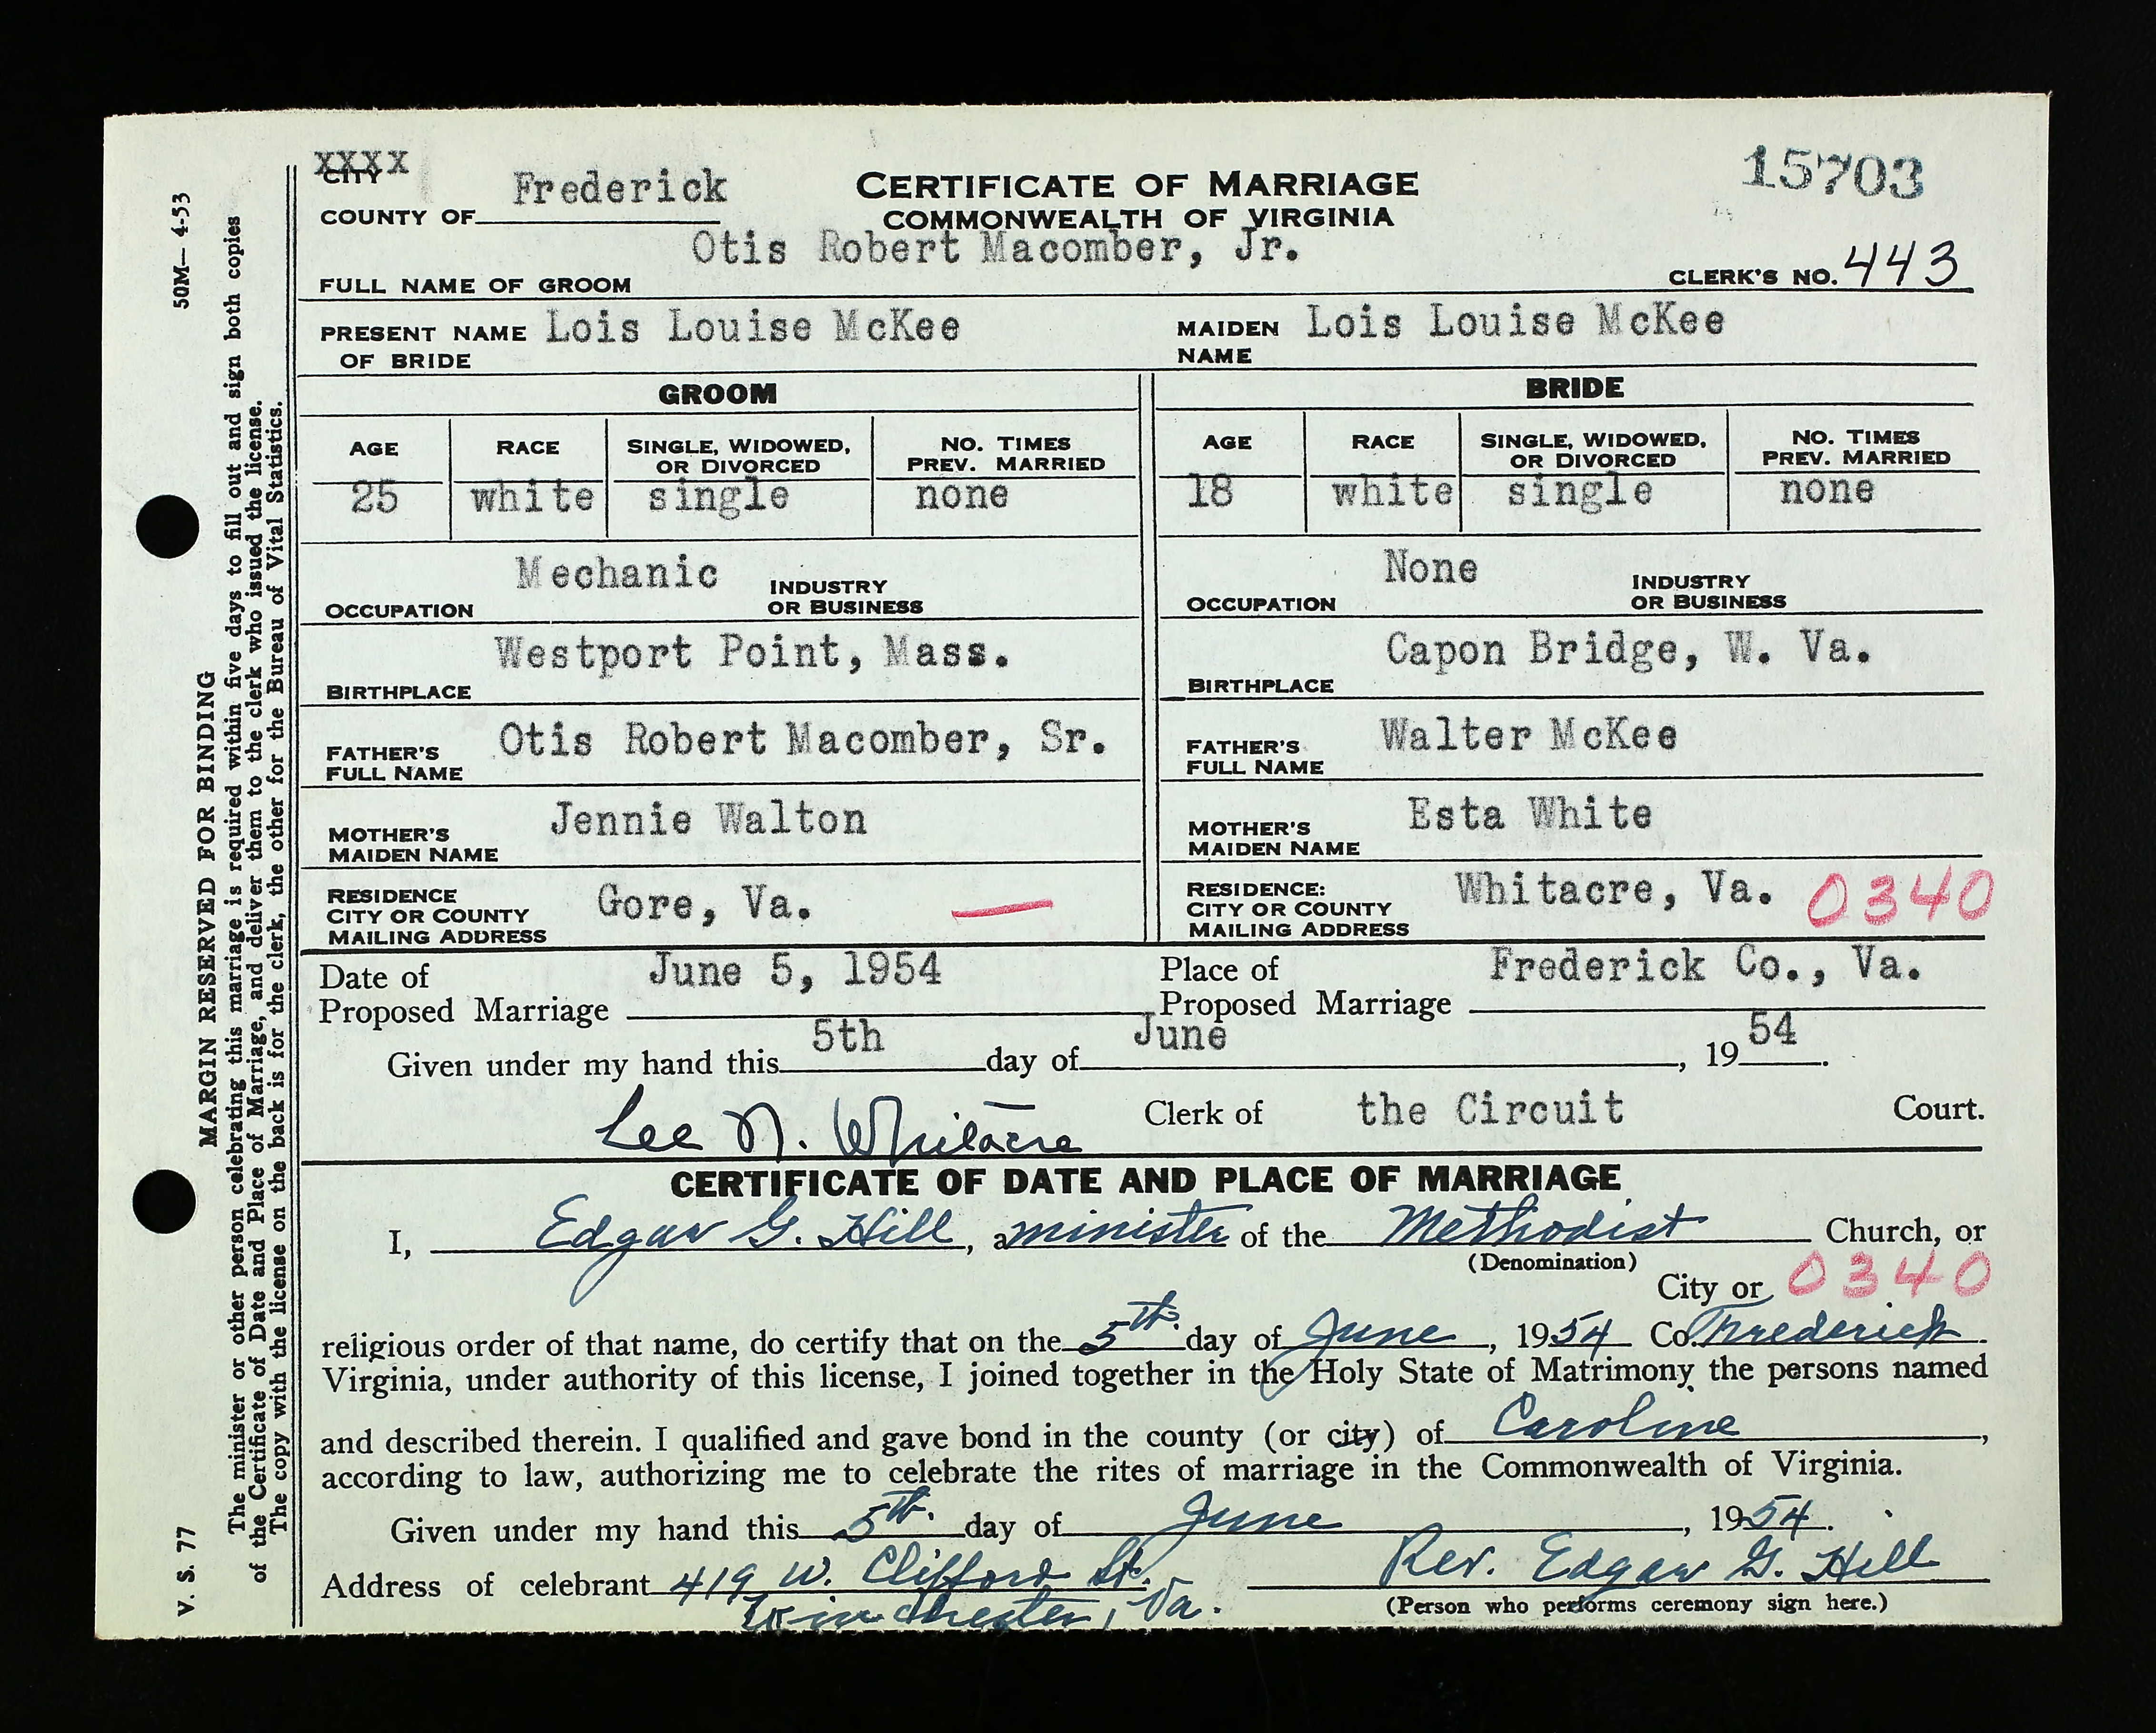 XXXX
CITY
COUNTY OF Frederick
CERTIFICATE OF MARRIAGE
COMMONWEALTH OF VIRGINIA
15703
FULL NAME OF GROOM Otis Robert Macomber, Jr.
CLERK'S NO. 443
PRESENT NAME OF BRIDE Lois Louise McKee
MAIDEN NAME Lois Louise McKee
GROOM
AGE RACE SINGLE, WIDOWED, OR DIVORCED NO. TIMES PREV. MARRIED
25 white single none
OCCUPATION Mechanic INDUSTRY OR BUSINESS
BIRTHPLACE Westport Point, Mass.
FATHER'S FULL NAME Otis Robert Macomber, Sr.
MOTHER'S MAIDEN NAME Jennie Walton
RESIDENCE CITY OR COUNTY MAILING ADDRESS Gore, Va. —
BRIDE
AGE RACE SINGLE, WIDOWED, OR DIVORCED NO. TIMES PREV. MARRIED
18 white single none
OCCUPATION None INDUSTRY OR BUSINESS
BIRTHPLACE Capon Bridge, W. Va.
FATHER'S FULL NAME Walter McKee
MOTHER'S MAIDEN NAME Esta White
RESIDENCE: CITY OR COUNTY MAILING ADDRESS Whitacre, Va. 0340
Date of Proposed Marriage June 5, 1954
Place of Proposed Marriage Frederick Co., Va.
Given under my hand this 5th day of June, 1954.
Lee N. Whitacre Clerk of the Circuit Court.
CERTIFICATE OF DATE AND PLACE OF MARRIAGE
I, Edgar G. Hill, a minister of the Methodist Church, or
(Denomination)
City or 0340
religious order of that name, do certify that on the 5th. day of June, 1954 Co. Frederick
Virginia, under authority of this license, I joined together in the Holy State of Matrimony the persons named
and described therein. I qualified and gave bond in the county (or city) of Caroline,
according to law, authorizing me to celebrate the rites of marriage in the Commonwealth of Virginia.
Given under my hand this 5th. day of June, 1954.
Address of celebrant 419 W. Clifford St.
Winchester, Va.
Rev. Edgar G. Hill
(Person who performs ceremony sign here.)
V. S. 77
MARGIN RESERVED FOR BINDING
50M—4-53
The minister or other person celebrating this marriage is required within five days to fill out and sign both copies
of the Certificate of Date and Place of Marriage, and deliver them to the clerk who issued the license.
The copy with the license on the back is for the clerk, the other for the Bureau of Vital Statistics.